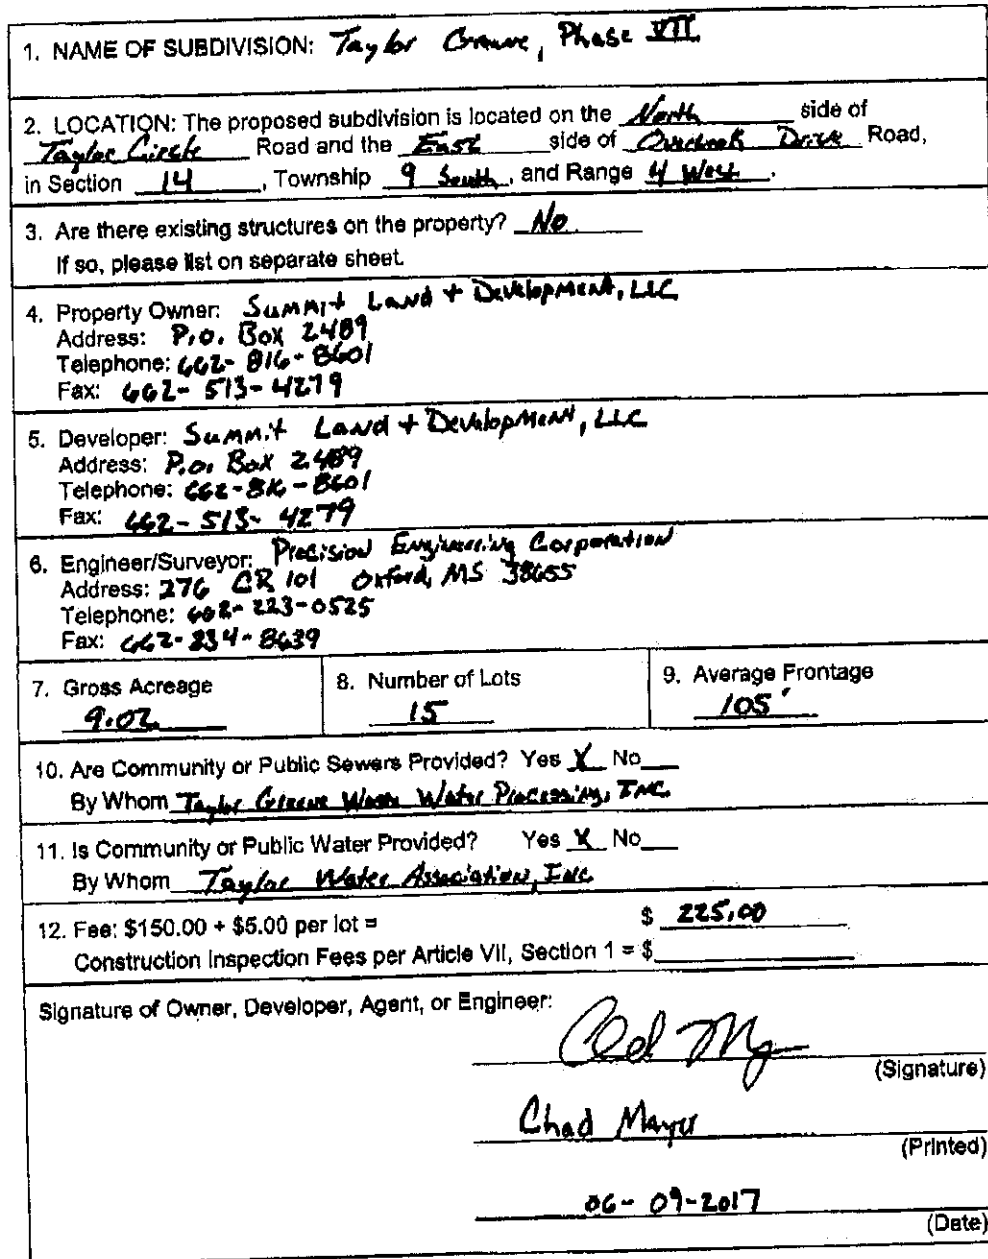 1. NAME OF SUBDIVISION: Taylor Greene, Phase VII
2. LOCATION: The proposed subdivision is located on the North side of
Taylor Circle Road and the East side of Overlook Drive Road,
in Section 14, Township 9 South, and Range 4 West.
3. Are there existing structures on the property? No
If so, please list on separate sheet.
4. Property Owner: Summit Land + Development, LLC
Address: P.O. Box 2489
Telephone: 662-816-8601
Fax: 662-513-4279
5. Developer: Summit Land + Development, LLC
Address: P.O. Box 2489
Telephone: 662-816-8601
Fax: 662-513-4279
6. Engineer/Surveyor: Precision Engineering Corporation
Address: 276 CR 101 Oxford, MS 38655
Telephone: 662-223-0525
Fax: 662-234-8639
7. Gross Acreage
9.02
8. Number of Lots
15
9. Average Frontage
105'
10. Are Community or Public Sewers Provided? Yes X No
By Whom Taylor Greene Waste Water Processing, INC.
11. Is Community or Public Water Provided? Yes X No
By Whom Taylor Water Association, INC
12. Fee: $150.00 + $5.00 per lot = $ 225.00
Construction Inspection Fees per Article VII, Section 1 = $
Signature of Owner, Developer, Agent, or Engineer:
(Signature)
Chad Mayer
(Printed)
06-09-2017
(Date)